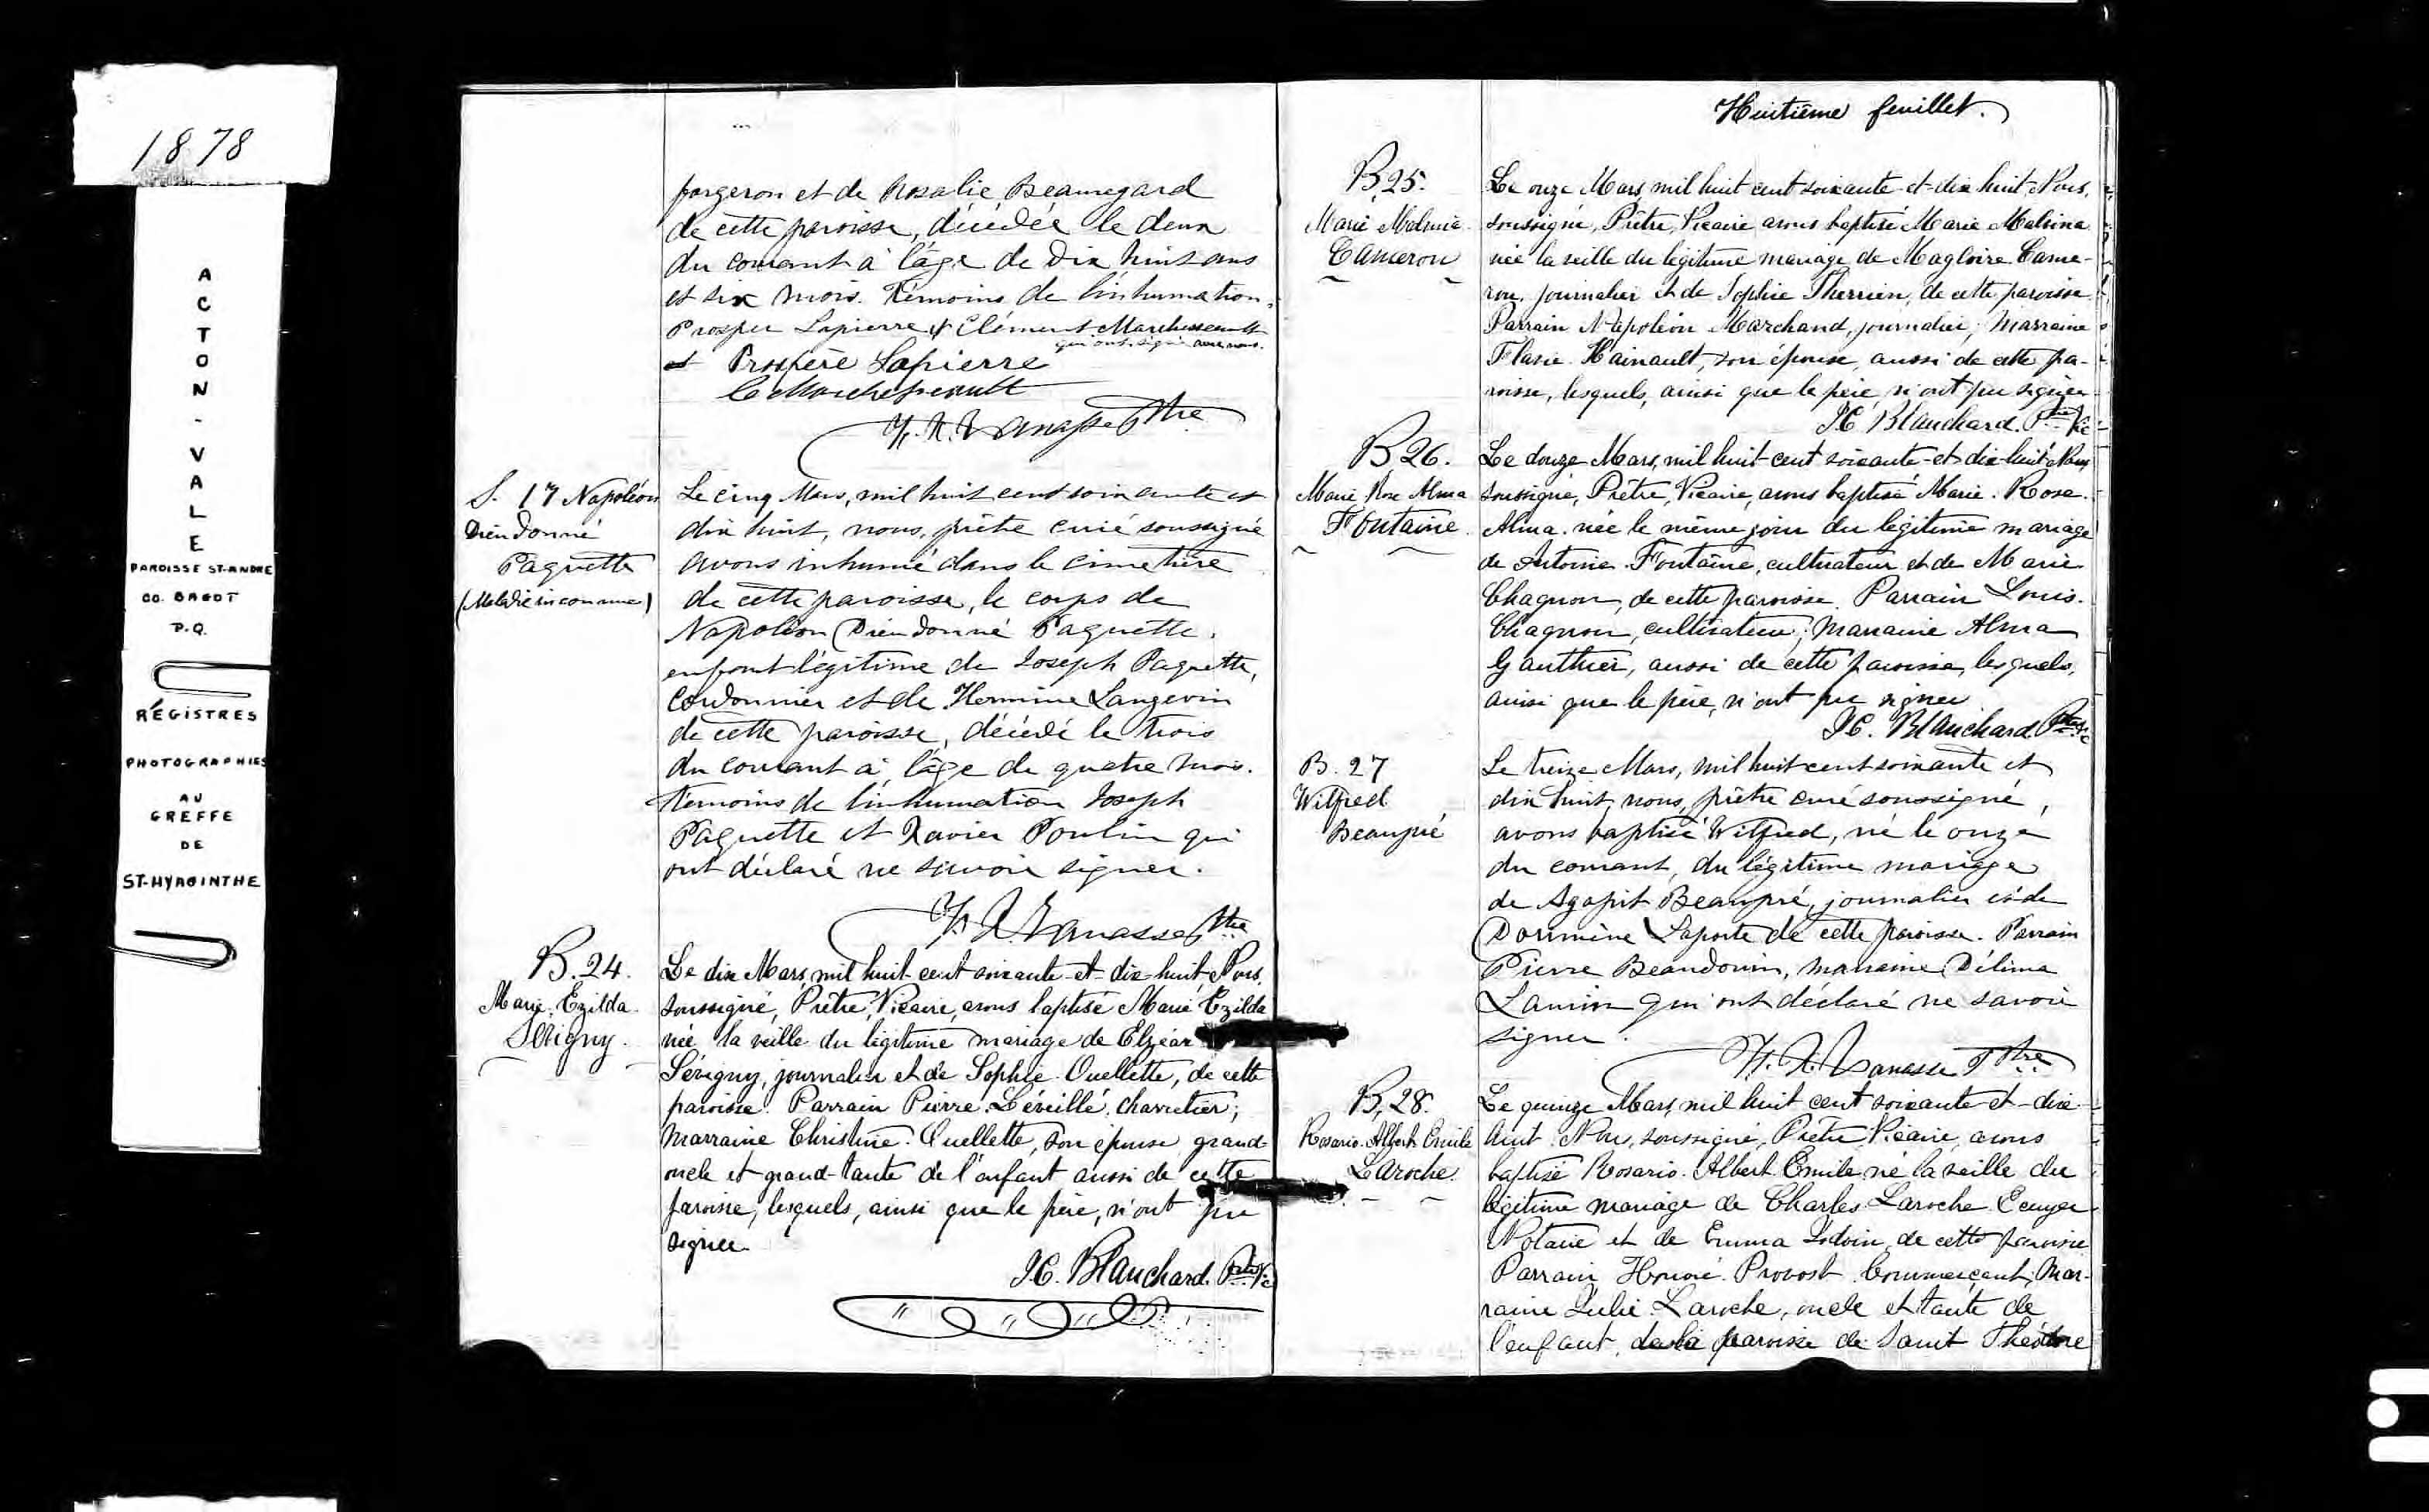 1878
ACTON-VALE
PAROISSE ST-ANDRE
CO. BAGOT
P.Q.
RÉGISTRES
PHOTOGRAPHIES
AU
GREFFE
DE
ST-HYACINTHE
forgeron et de Rosalie Beauregard
de cette paroisse, décédée le deux
du courant à l'âge de dix huit ans
et six mois. Témoins de l'inhumation,
Prosper Lapierre & Clément Marchesseault
qui ont signé avec nous.
et Prospère Lapierre
C Marchesseault
Vanasse Ptre
S. 17 Napoléon
Dieudonné
Paquette
(Maladie inconnue)
Le cinq Mars, mil huit cent soixante et
dix huit, nous, prêtre curé soussigné
avons inhumé dans le cimetière
de cette paroisse, le corps de
Napoléon Dieudonné Paquette,
enfant légitime de Joseph Paquette,
Cordonnier et de Hermine Langevin
de cette paroisse, décédé le trois
du courant à l'âge de quatre mois.
Témoins de l'inhumation Joseph
Paquette et Xavier Poulin qui
ont déclaré ne savoir signer.
Vanasse Ptre
B. 24.
Marie Ezilda
Sévigny.
Le dix Mars, mil huit cent soixante-et-dix-huit Nous,
soussigné, Prêtre, Vicaire, avons baptisé Marie Ezilda
née la veille du légitime mariage de Elzéar
Sévigny, journalier et de Sophie Ouellette, de cette
paroisse. Parrain Pierre Léveillé, charretier;
Marraine Christine Ouellette, son épouse, grand-
oncle et grand-tante de l'enfant aussi de cette
paroisse, lesquels, ainsi que le père, n'ont pu
signer.
J.C. Blanchard. Ptre Vic
Huitième feuillet.
B, 25.
Marie Malvina
Cameron
Le onze Mars, mil huit cent soixante-et-dix huit Nous,
soussigné, Prêtre, Vicaire avons baptisé Marie Malvina
née la veille du légitime mariage de Magloire Came-
ron, journalier et de Sophie Therrien, de cette paroisse.
Parrain Napoléon Marchand, journalier; Marraine
Flavie Hainault, son épouse, aussi de cette pa-
roisse, lesquels, ainsi que le père, n'ont pu signer
J.C. Blanchard. Ptre Vic
B 26.
Marie Rose Alma
Fontaine.
Le douze Mars, mil huit cent soixante-et-dix-huit Nous
soussigné, Prêtre, Vicaire, avons baptisé Marie. Rose.
Alma. née le même jour du légitime mariage
de Antoine Fontaine, cultivateur et de Marie
Chagnon, de cette paroisse. Parrain Louis.
Chagnon, cultivateur; Marraine Alma
Gauthier, aussi de cette paroisse, lesquels,
ainsi que le père, n'ont pu signer
J.C. Blanchard. Ptre Vic
B. 27
Wilfred
Beaupré
Le treize Mars, mil huit cent soixante et
dix huit, nous, prêtre curé soussigné,
avons baptisé Wilfred, né le onze
du courant, du légitime mariage
de Agapit Beaupré, journalier et de
Domine Laporte de cette paroisse. Parrain
Pierre Beaudouin, marraine Délima
qui ont déclaré ne savoir
signer.
Vanasse Ptre
B, 28.
Rosario. Albert Emile
Laroche.
Le quinze Mars, mil huit cent soixante-et-dix-
huit Nous, soussigné, Prêtre, Vicaire, avons
baptisé Rosario. Albert. Emile né la veille du
légitime mariage de Charles Laroche Ecuyer
Notaire et de Emma de cette paroisse
Parrain Honoré Provost Commerçant; Mar-
raine Julie Laroche, oncle et tante de
l'enfant, de la paroisse de Saint Théodore